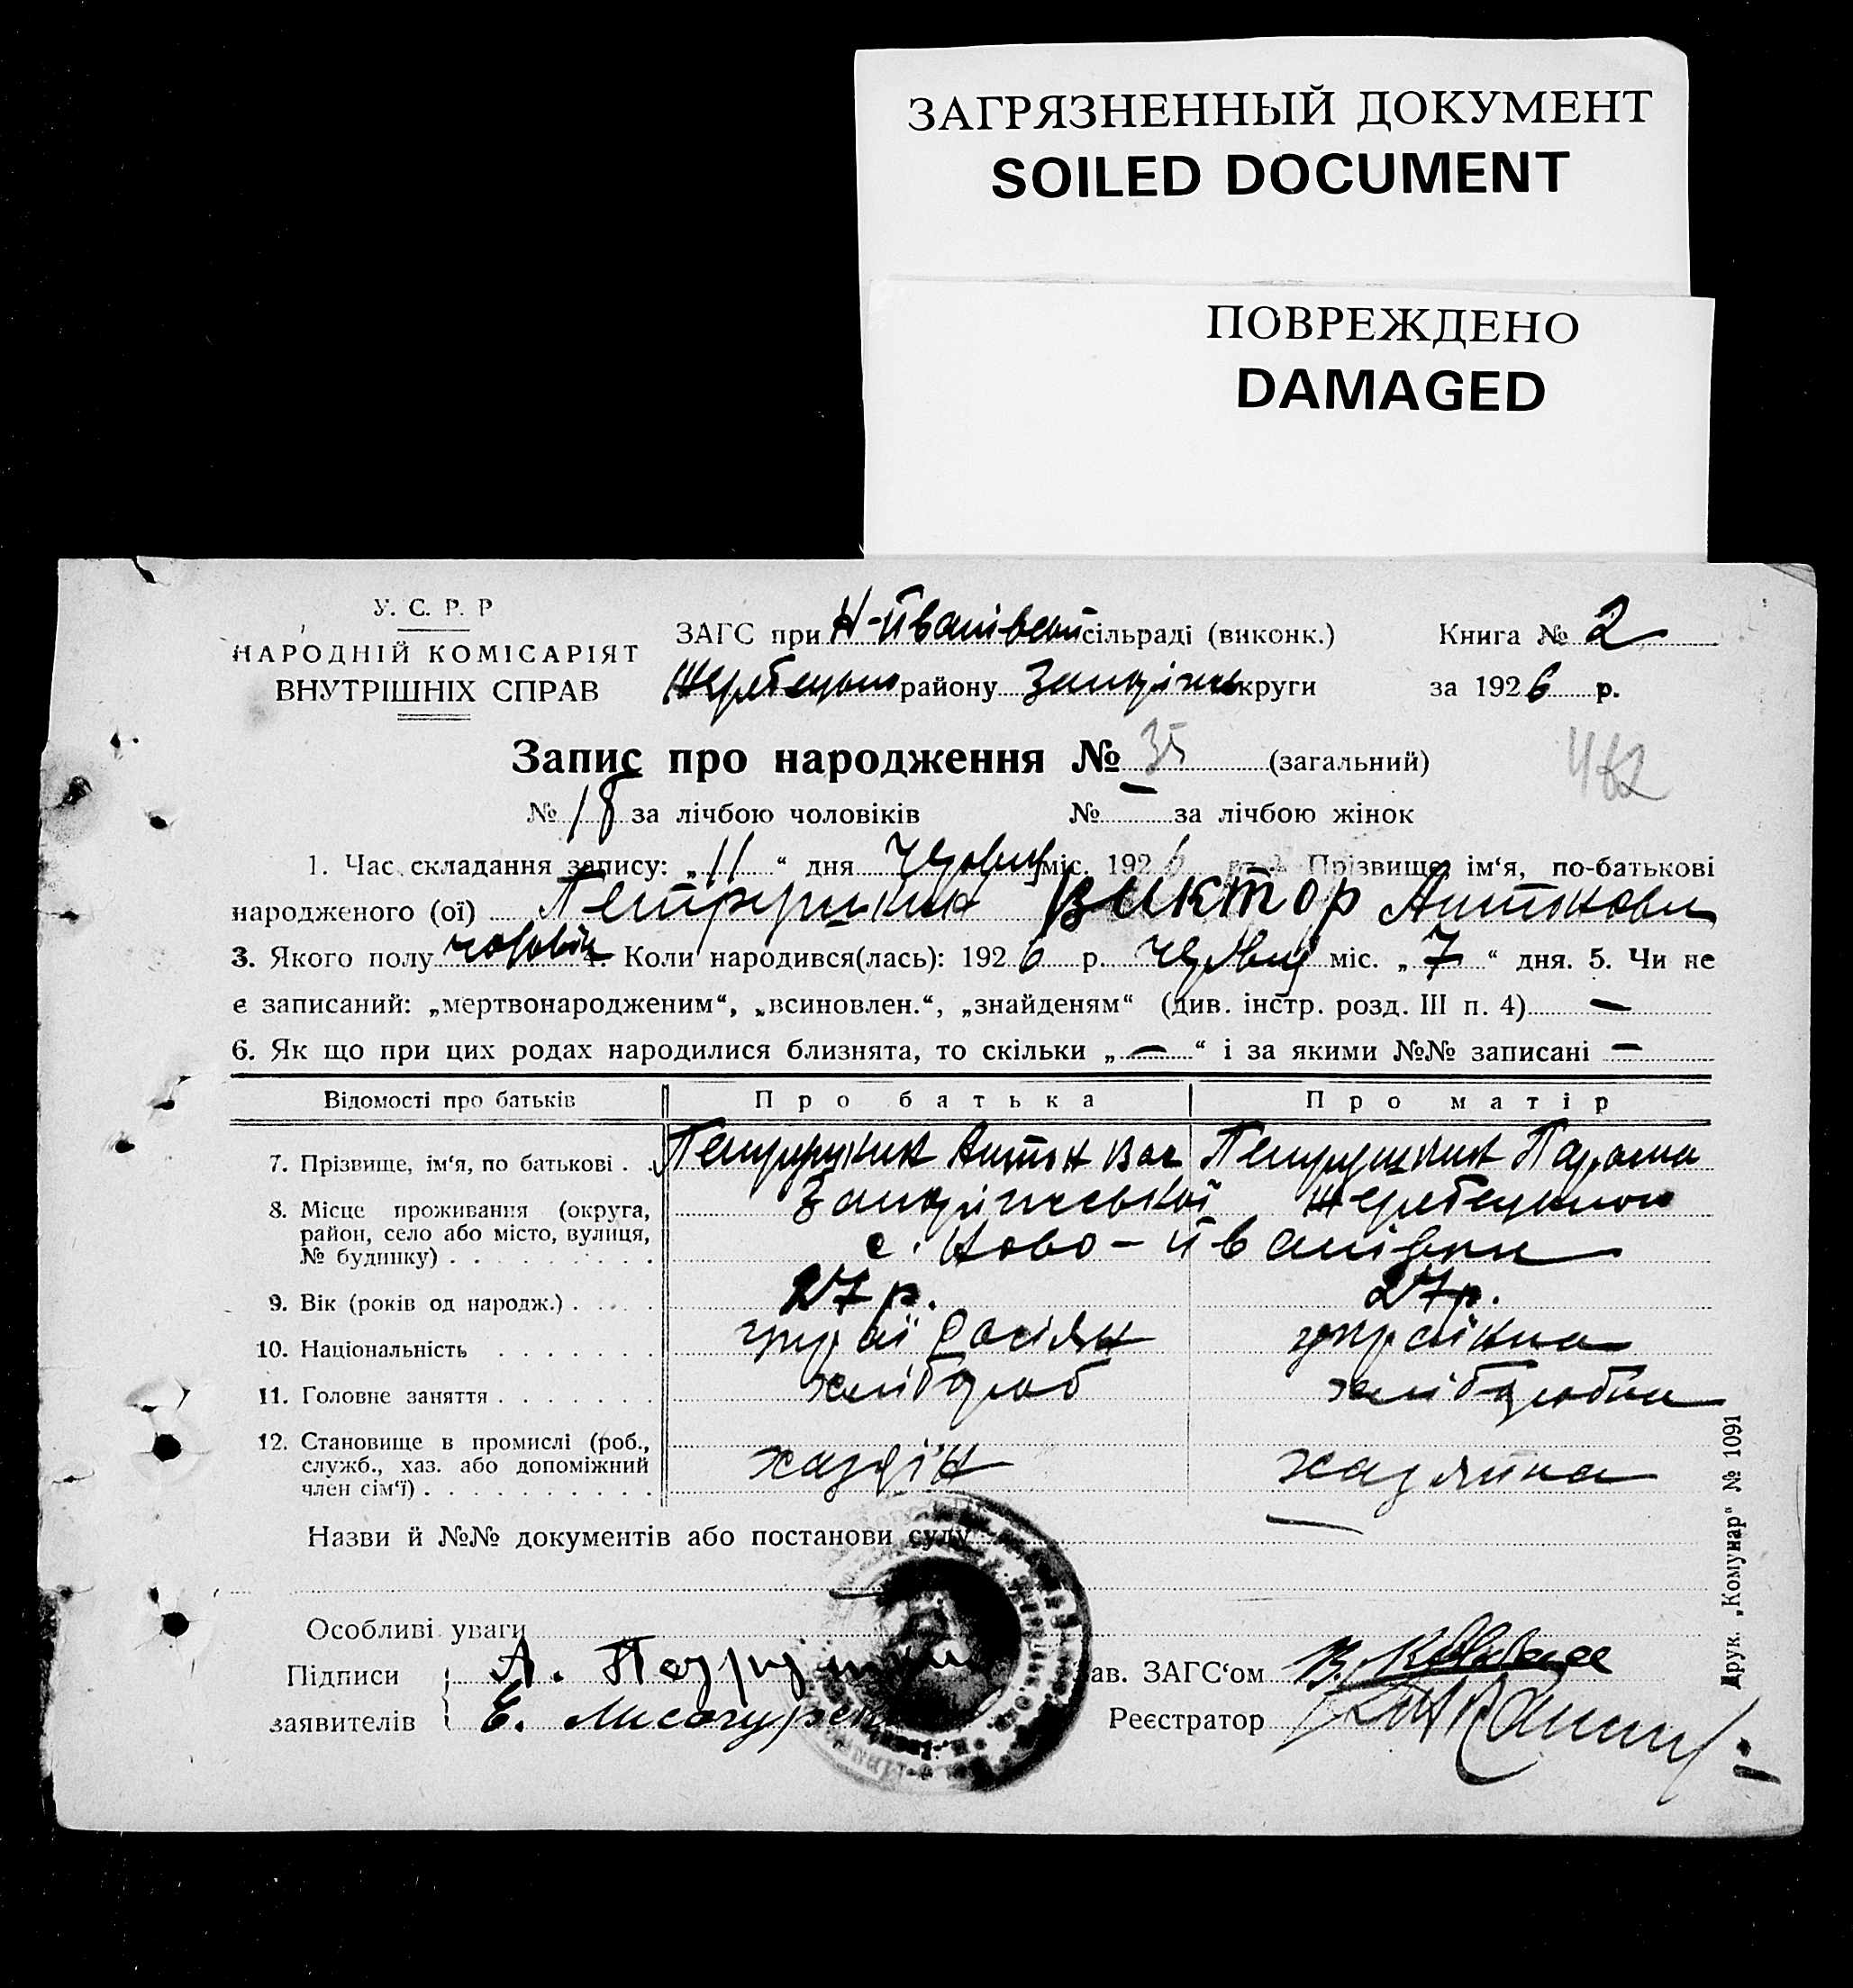 ЗАГРЯЗНЕННЫЙ ДОКУМЕНТ
SOILED DOCUMENT
ПОВРЕЖДЕНО
DAMAGED
У. С. Р. Р
НАРОДНІЙ КОМІСАРІЯТ
ВНУТРІШНІХ СПРАВ
ЗАГС при Н-Иванівськ сільраді (виконк.)
Жеребецьк району Запоріжськ округи
Книга № 2
за 1926 р.
Запис про народження № 35 (загальний)
482
№ 18 за лічбою чоловіків № — за лічбою жінок
1. Час складання запису: „11“ дня Червня міс. 1926 Прізвище, ім‘я, по-батькові
народженого (ої) Петрушкин Виктор Антонови
3. Якого полу чоловік 4. Коли народився(лась): 1926 р. Червня міс. „7“ дня. 5. Чи не
є записаний: „мертвонародженим“, „всиновлен.“, „знайденям“ (див. інстр. розд. III п. 4) —
6. Як що при цих родах народилися близнята, то скільки „—“ і за якими №№ записані —
Відомості про батьків Про батька Про матір
7. Прізвище, ім‘я, по батькові . . Петрушкин Антон Вас Петрушкина
8. Місце проживання (округа, район, село або місто, вулиця, № будинку) . Запоріжської Жеребецького
с. Ново-Иванівки
9. Вік (років од народж.) . 27 р. 27 р.
10. Національність . україна
11. Головне заняття . хлібороб хліборобка
12. Становище в промислі (роб., служб., хаз. або допоміжний член сім‘ї) . хазяїн хазяйка
Назви й №№ документів або постанови суду
Особливі уваги
Підписи А. Петрушкин
заявителів Е.
Зав. ЗАГС‘ом В.
Реєстратор
Друк. „Комунар“ № 1091